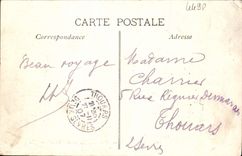 4498
CARTE POSTALE
Correspondance
Adresse
Beau voyage
Madame
Charrier
5 Rue Régnier Desmarais
Thouars
2 Sèvres
THOUARS